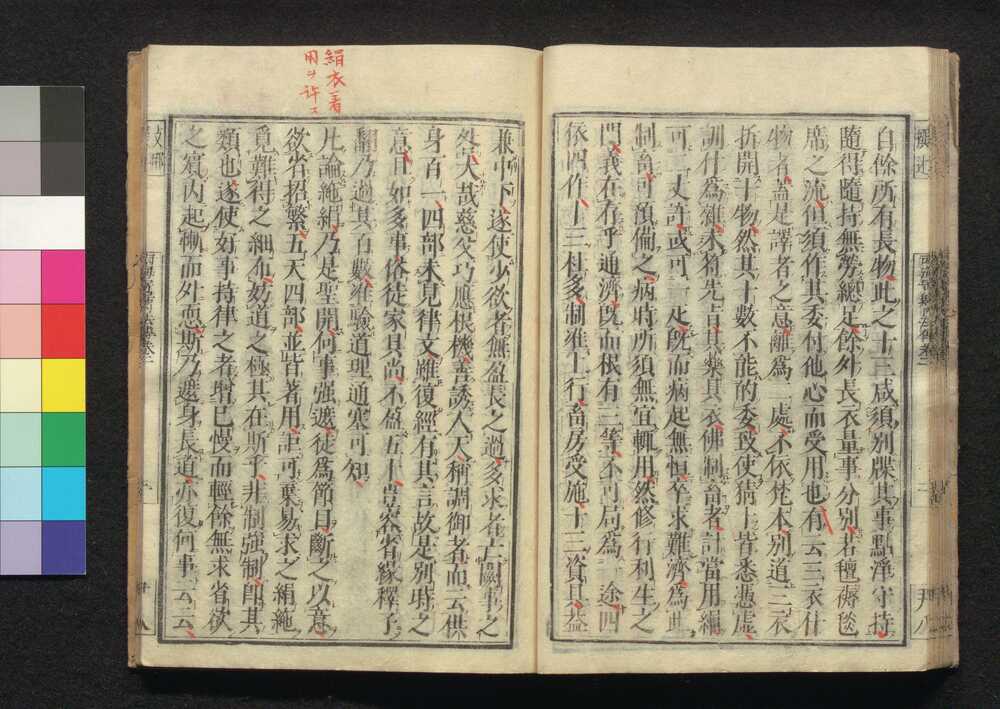 自餘所有長物此之十三咸須別牒其事點淨守持
隨得隨持無勞總足餘外長衣量事分別若氈褥毯
席之流但須作其委付他心而受用也有云三衣什
物者蓋是譯者之意離為二處不依梵本別道三衣
拆開十物然其十數不能的委致使猜卜皆悉憑虛
訓什為雜未符先旨其藥具衣佛制畜者計當用絹
可二丈許或可一疋既而病起無恒卒求難濟為此
制畜可預備之病時所須無宜輒用然修行利生之
門義在存乎通濟既而根有三等不可局為一途四
依四作十二杜多制准上行畜房受施十三資具益
絹衣著
用ヲ許ス
兼中下遂使少欲者無盈長之過多求者亡闕事之
咎大哉慈父巧應根機善誘人天稱調御者而云供
身百一四部未見律文雖復經有其言故是別時之
意且如多事俗徒家具尚不盈五十豈容省緣釋子
翻乃過其百數准驗道理通塞可知
凡論絁絹乃是聖開何事强遮徒為節目斷之以意
欲省招繁五天四部並皆著用詎可棄易求之絹絁
覓難得之細布妨道之極其在斯乎非制强制卽其
類也遂使好事持律之者增己慢而輕餘無求省欲
之賓內起慚而外恧斯乃遮身長道亦復何事云云